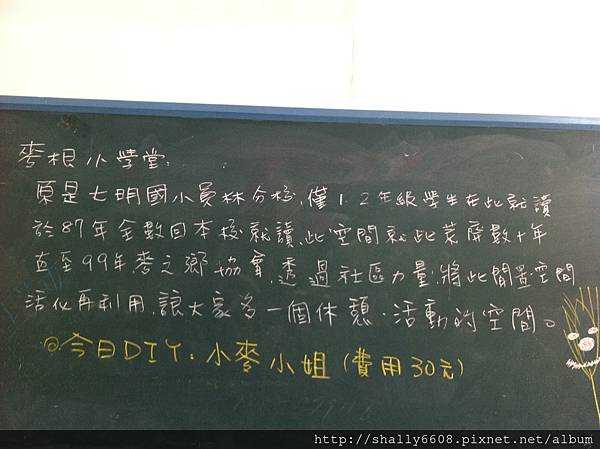 麥根小學堂:
原是七明國小員林分校,僅1.2年級學生在此就讀
於87年全數回本校就讀,此空間就此荒廢數十年
直至99年麥之鄉協會,透過社區力量,將此閒置空間
活化再利用,讓大家多一個休憩.活動的空間。
◎今日DIY:小麥小姐(費用30元)
http://shally6608.pixnet.net/album